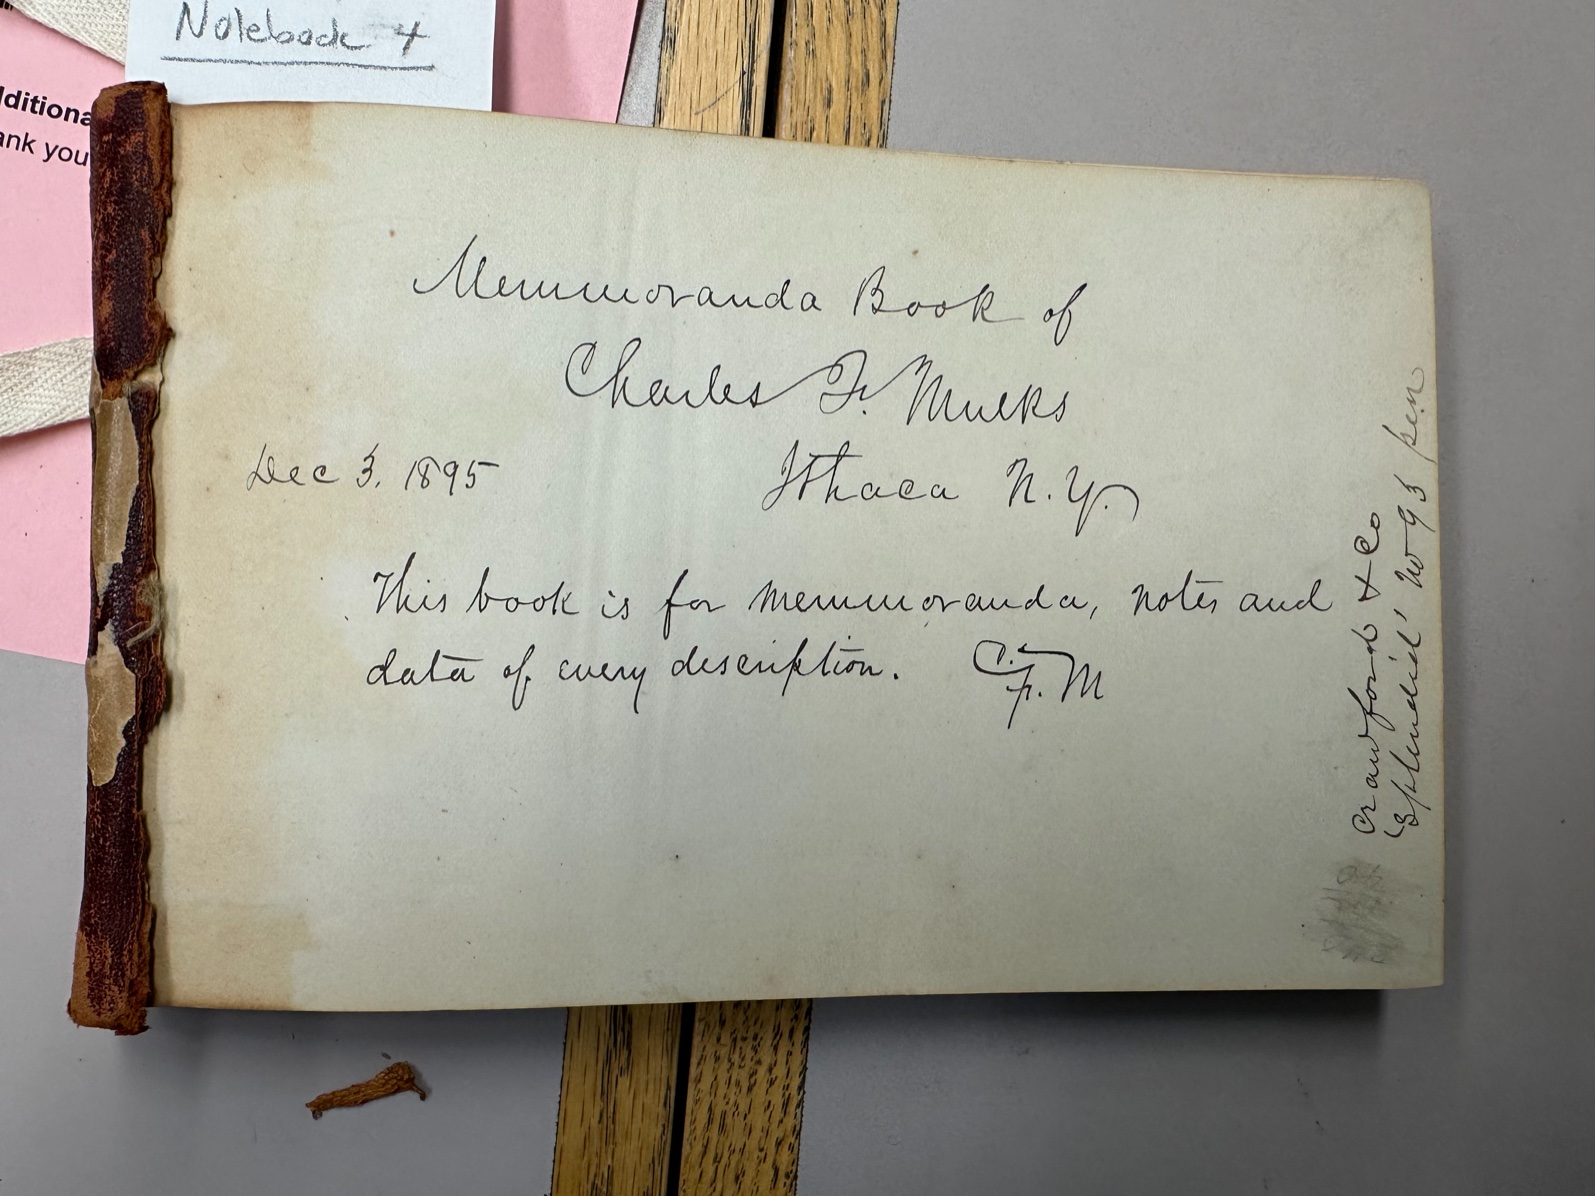 Notebook 4
dditiona
ank you
Memmoranda Book of
Charles F. Mulks
Dec 3, 1895
Ithaca N.Y.
This book is for memmoranda, notes and
data of every description. C. F. M
Crawford & Co
'Splendid' No 93 pen